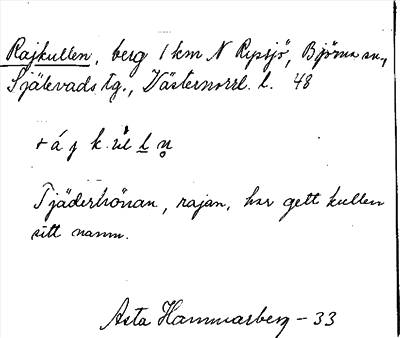 Rajkullen, berg 1 km N Rypsjö, Björna sn,
Själevads tg., Västernorrl. l. 48
Tjäderhönan, rajan, har gett kullen
sitt namn.
Asta Hammarberg - 33